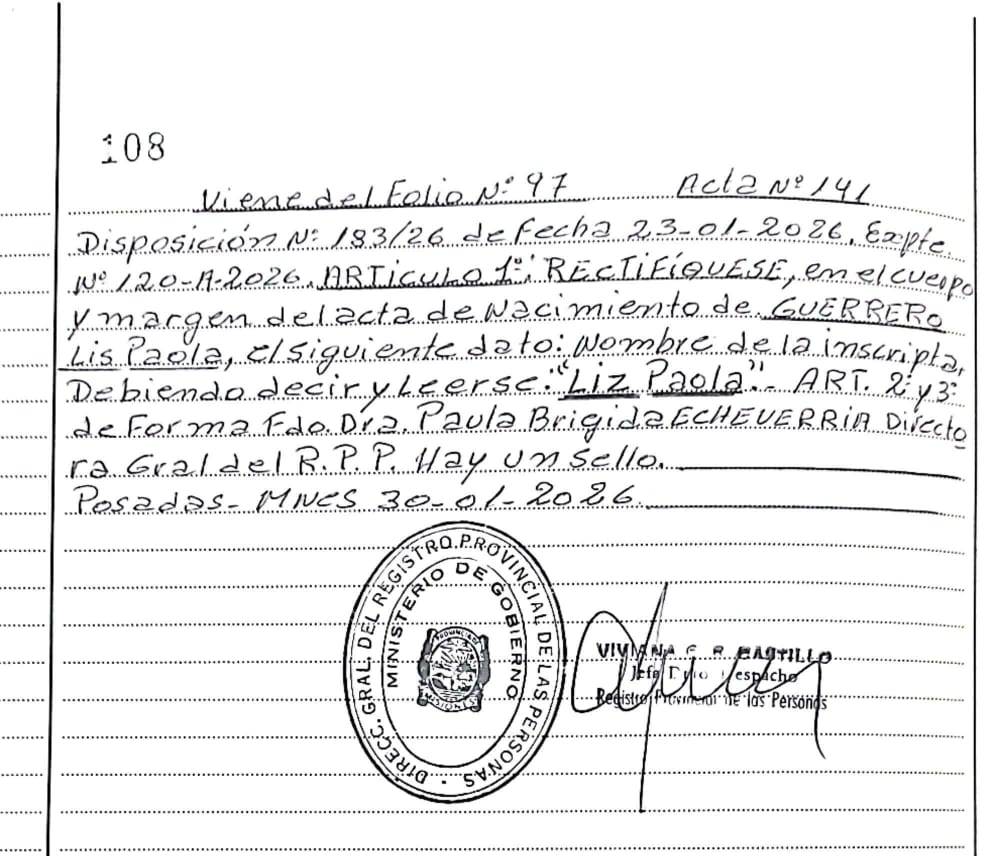 108
Viene del Folio Nº 97 Acta Nº 141
Disposición Nº 183/26 de fecha 23-01-2026. Expte.
Nº 120-A-2026. ARTICULO 1º: RECTIFÍQUESE, en el cuerpo
y margen del acta de Nacimiento de GUERRERO
Lis Paola, el siguiente dato: Nombre de la inscripta,
Debiendo decir y Leerse: "Liz Paola".- ART. 2º y 3º
de Forma Fdo. Dra. Paula Brigida ECHEVERRIA Directo
ra Gral del R.P.P. Hay un sello.
Posadas- MNES 30-01-2026.
DIRECC. GRAL. DEL REGISTRO PROVINCIAL DE LAS PERSONAS
MINISTERIO DE GOBIERNO
PROVINCIA DE
MISIONES
VIVIANA CASTILLO
Jefe Despacho
Registro Provincial de las Personas